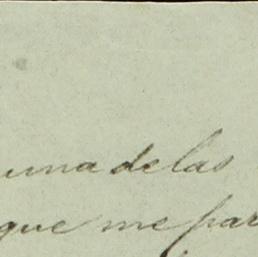 una de las
que me par